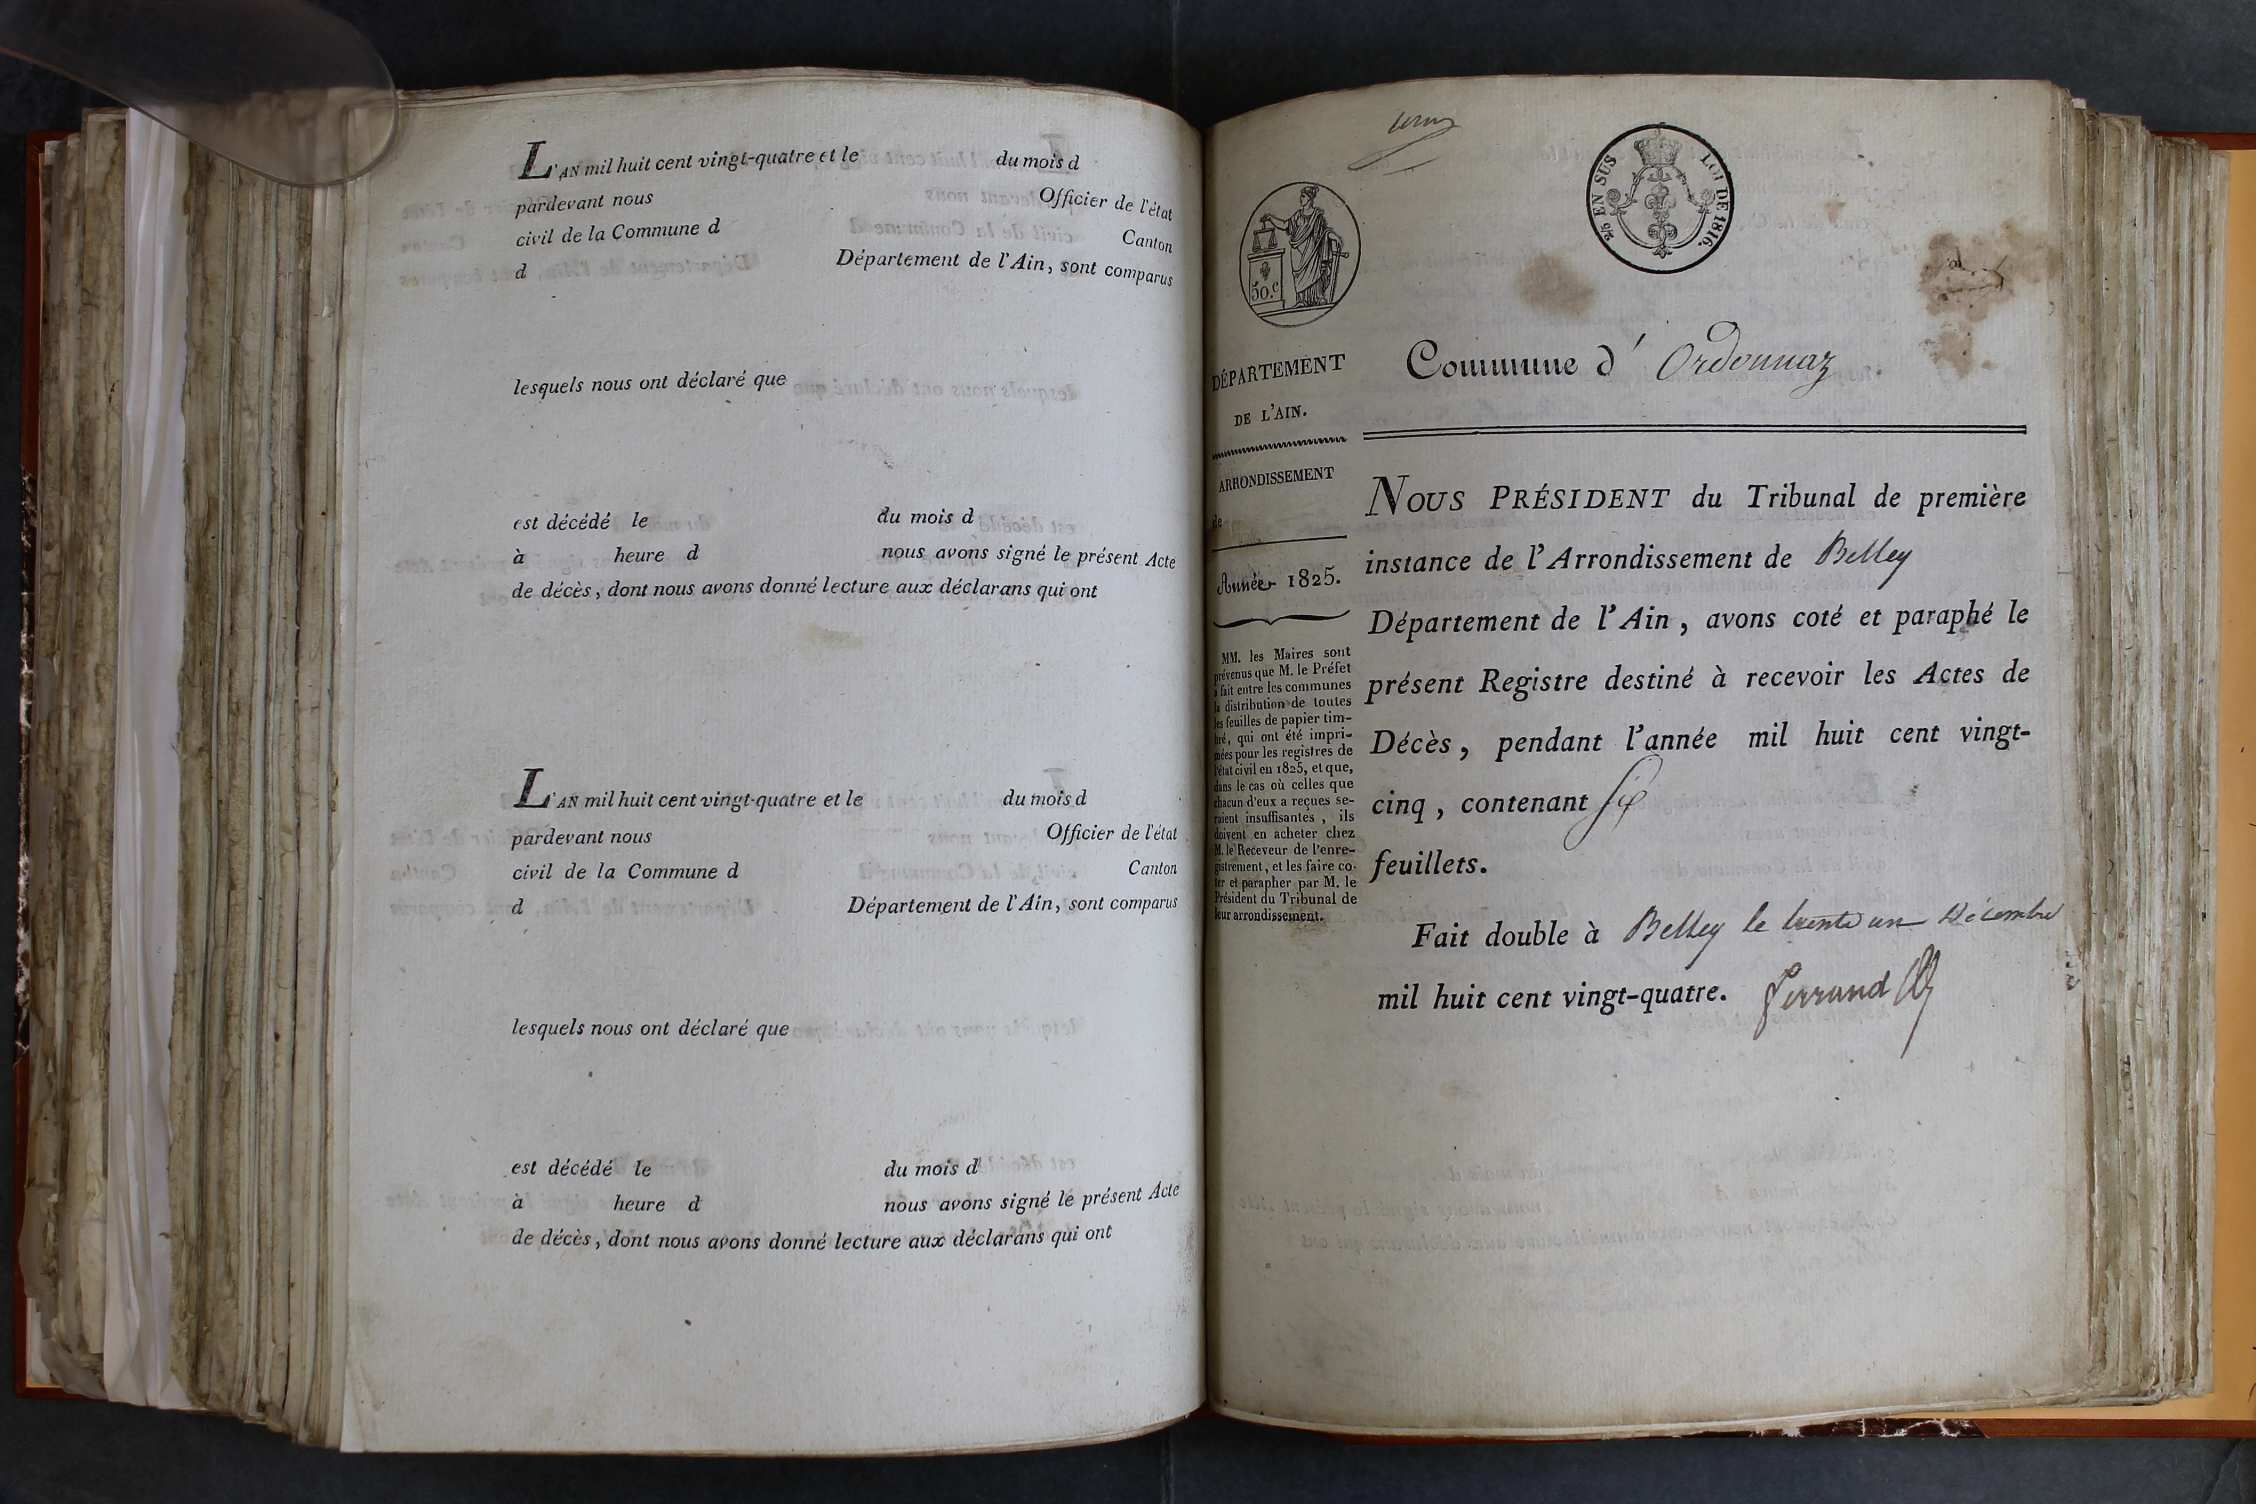 L'AN mil huit cent vingt-quatre et le du mois d
pardevant nous Officier de l'état
civil de la Commune d Canton
d Département de l'Ain, sont comparus
lesquels nous ont déclaré que
est décédé le du mois d
à heure d nous avons signé le présent Acte
de décès, dont nous avons donné lecture aux déclarans qui ont
L'AN mil huit cent vingt-quatre et le du mois d
pardevant nous Officier de l'état
civil de la Commune d Canton
d Département de l'Ain, sont comparus
lesquels nous ont déclaré que
est décédé le du mois d
à heure d nous avons signé le présent Acte
de décès, dont nous avons donné lecture aux déclarans qui ont
25 EN SUS LOI DE 1816.
50.c
DÉPARTEMENT
DE L'AIN.
ARRONDISSEMENT
de
Année 1825.
MM. les Maires sont
prévenus que M. le Préfet
a fait entre les communes
la distribution de toutes
les feuilles de papier tim-
bré, qui ont été impri-
mées pour les registres de
l'état civil en 1825, et que,
dans le cas où celles que
chacun d'eux a reçues se-
raient insuffisantes, ils
doivent en acheter chez
M. le Receveur de l'enre-
gistrement, et les faire co-
ter et parapher par M. le
Président du Tribunal de
leur arrondissement.
Commune d' Ordonnaz
NOUS PRÉSIDENT du Tribunal de première
instance de l'Arrondissement de Belley
Département de l'Ain, avons coté et paraphé le
présent Registre destiné à recevoir les Actes de
Décès, pendant l'année mil huit cent vingt-
cinq, contenant Six
feuillets.
Fait double à Belley le trente un Décembre
mil huit cent vingt-quatre. Ferrand